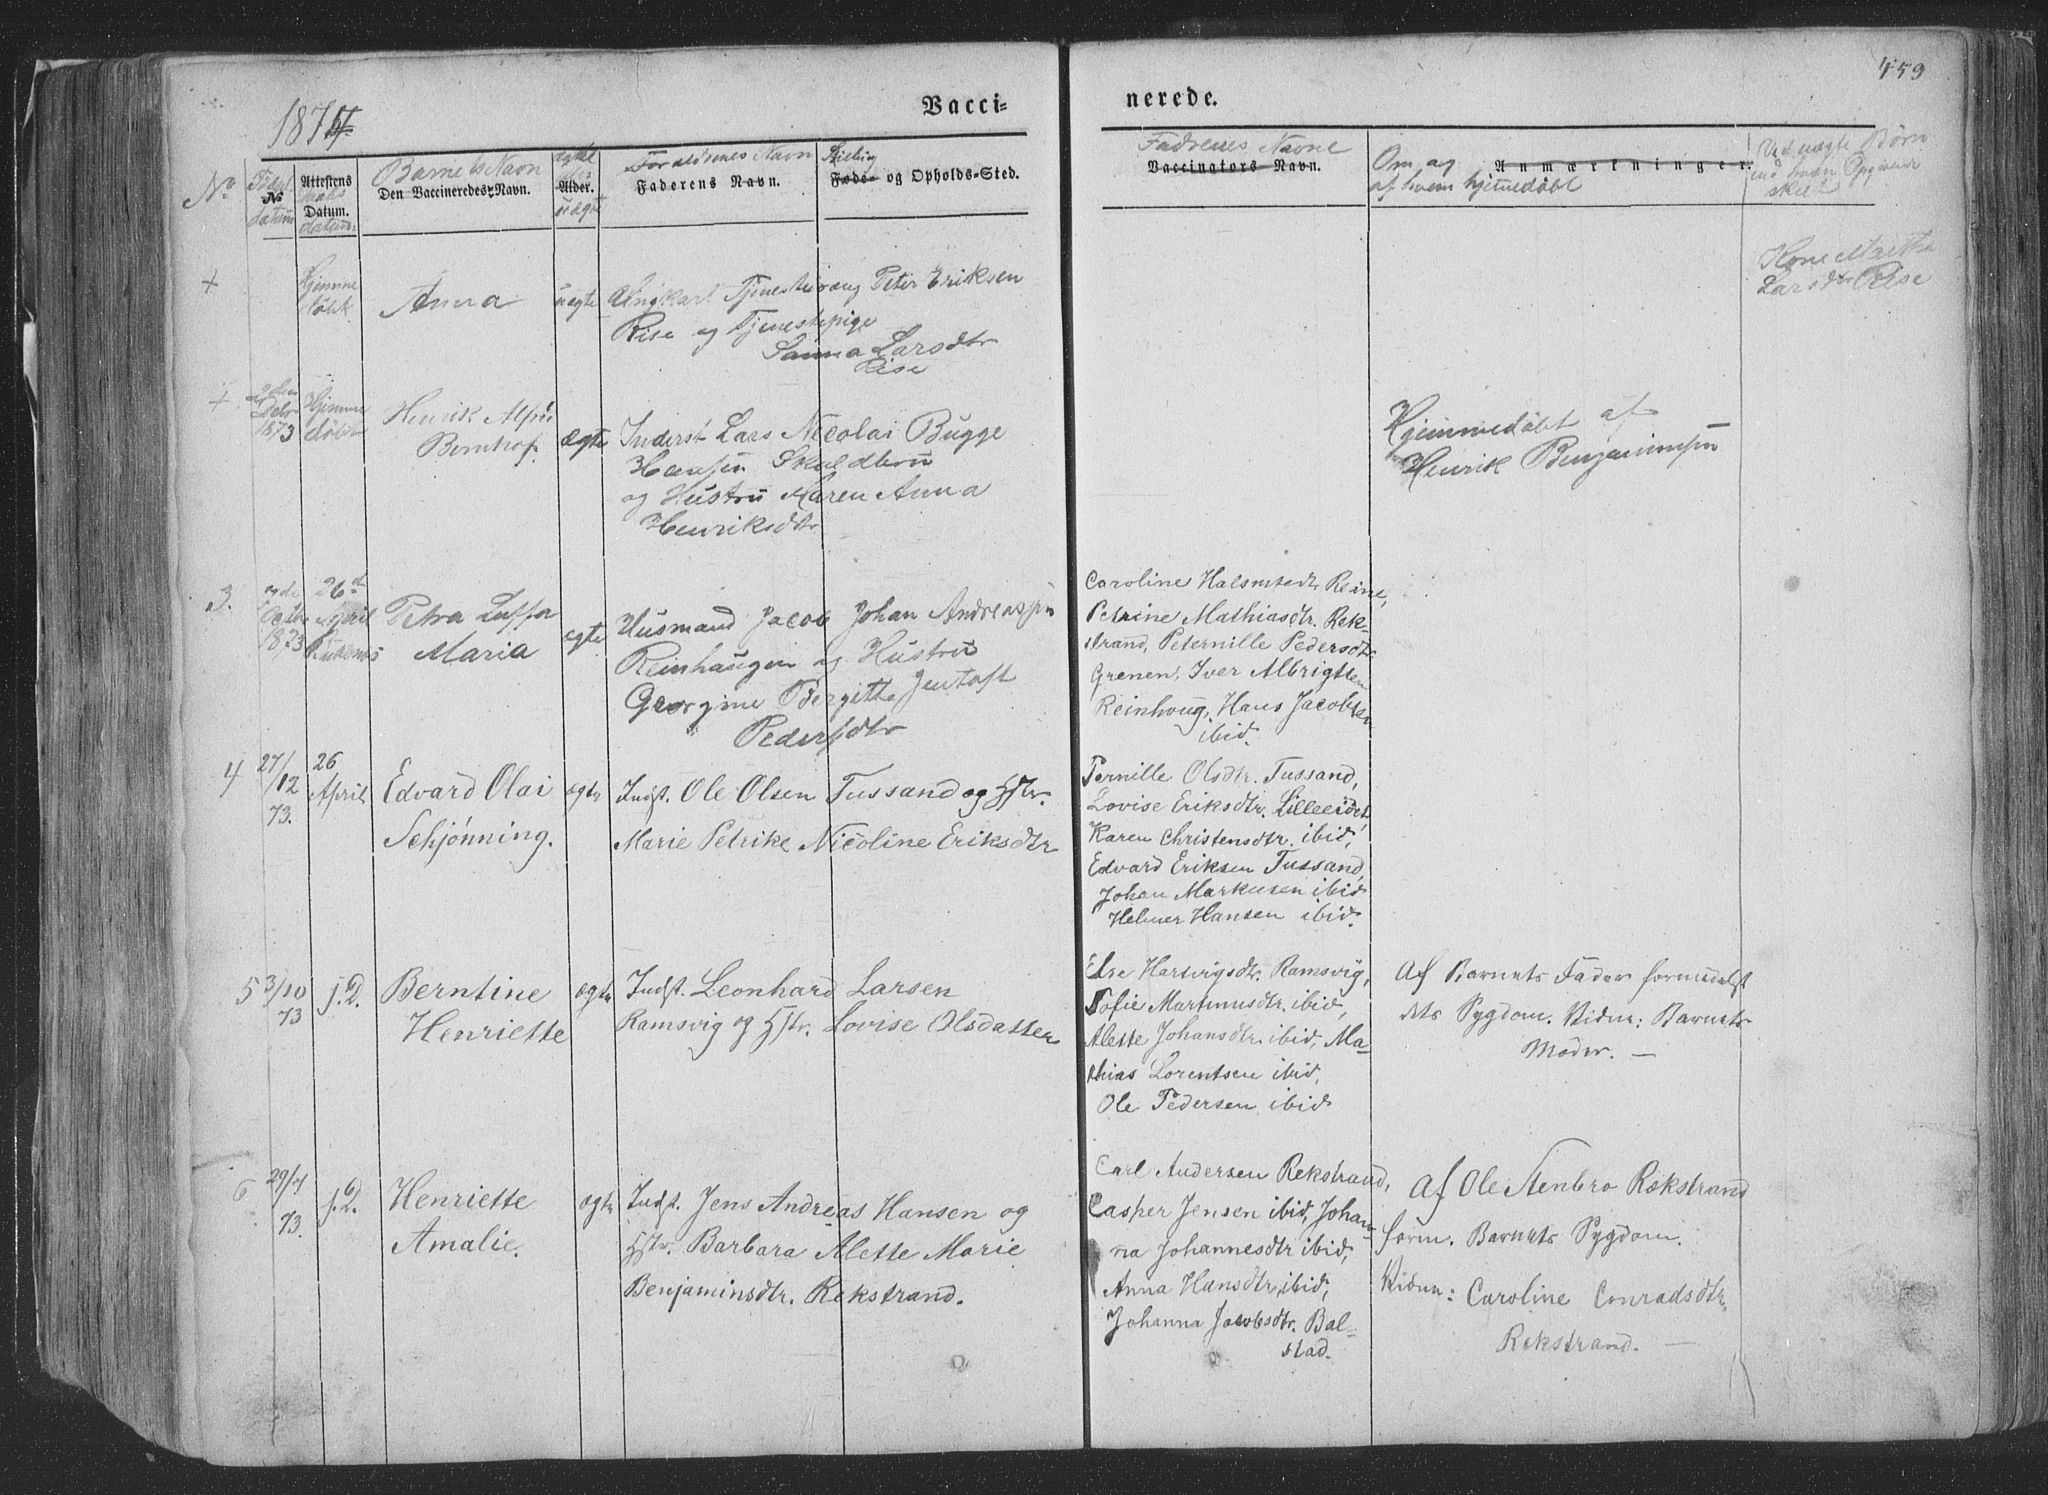 459
1874
Vacci=
nerede.
No
Födsels
datum
No
Attestens
Daabs
Datum.
datum
Barnets Navn
Den Vaccineredes Navn.
ægte
eller
Alder.
uægte
Forældrenes Navn
Faderens Navn.
Stilling
Føde= og Opholds=Sted.
Fadrenes Navne
Vaccinators Navn.
Om og
af hvem hjemmedöbt
Anmærkninger.
Ved uægte Börn
skeet
+
Hjemme
döbt
Anna
uægte
Ungkarl Tjenestedreng Peter Eriksen
Rise og Tjenestepige
Sanna Larsdtr
Rise
Kone
Larsdtr Rise
+
Debr
1873
Hjemme
döbt
Henrik
ægte
Inderst Lars Nicolai Bugge
Hansen
og Hustru Maren Anna
Henriksdtr
Hjemmedöbt af
Henrik Benjaminsen
3.
1873
26d
April
Petra
Maria
ægte
Husmand Jacob Johan Andreassen
Reinhaugen og Hustru
Georgine Bergitte Jentoft
Pedersdtr
Caroline Halmstedt Reine,
Petrine Mathiasdtr. Rek-
strand, Peternille Pedersdtr
Grenen, Iver Albrigtsen
Reinhoug, Hans Jacobsen
ibid.
4
27/12
73.
26
April
Edvard Olai
Schjönning.
ægte
Indst. Ole Olsen Tussand og Hstr.
Marie Petrike Nicoline Eriksdtr
Pernille Olsdtr. Tussand,
Lovise Eriksdtr. Lilleeidet,
Karen Christensdtr. ibid,
Edvard Eriksen Tussand,
Johan Markusen ibid
Helmer Hansen ibid.
5
3/10
73
s.D.
Berntine
Henriette
ægte
Indst. Leonhard Larsen
Ramsvig og Hstr. Lovise Olsdatter
Else Hartvigsdtr. Ramsvig,
Sofie Martinusdtr. ibid,
Alette Johansdtr ibid, Ma-
thias Lorentsen ibid,
Ole Pedersen ibid
Af Barnets Fader formedelst
dets Sygdom. Vidne: Barnets
Moder. —
6
29/7
73.
s.D.
Henriette
Amalie.
ægte
Indst. Jens Andreas Hansen og
Hstr. Barbara Alette Marie
Benjaminsdtr. Rekstrand.
Carl Andersen Rekstrand,
Casper Jensen ibid, Johan-
na Johannesdtr ibid,
Anna Hansdtr. ibid,
Johanna Jacobsdtr. Bal=
stad.
Af Ole Stenbro Rekstrand
form. Barnets Sygdom.
Vidne: Caroline Conradsdtr.
Rekstrand. —